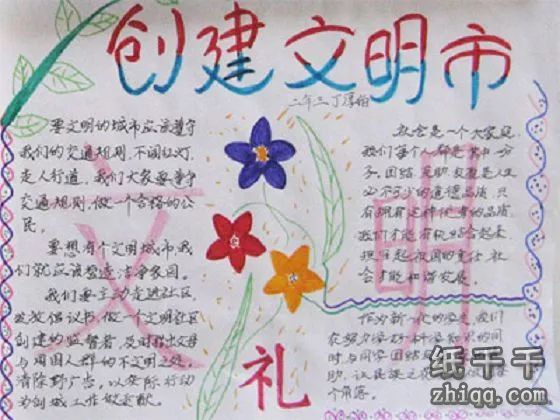 创建文明市
二年三 丁厚柏
要文明的城市应该遵守
我们的交通规则,不闯红灯,
走人行道,我们大家要争守
交通规则,做一个合格的公
民。
要想有个文明城市我
们就应该营造洁净家园。
我们要主动走进社区,
发放倡议书,做一个文明社区
创建的监督者,及时指出父母
与周围人群的不文明之处,
清除野广告,以实际行动
为创城工作做贡献。
社会是一个大家庭
我们每个人都是其中一分
子,团结、友助、友爱是人生
必不可少的道德品质,只
有拥有这种优秀的品质,
我们才能有机结合起来
担当起祖国的重任,社
会才能和谐发展。
作为新一代的少先,我们
在努力学好科学知识的同
时与同学团结
助,让文明之花
个角落。
文
明
礼
纸千千
zhiqq.com